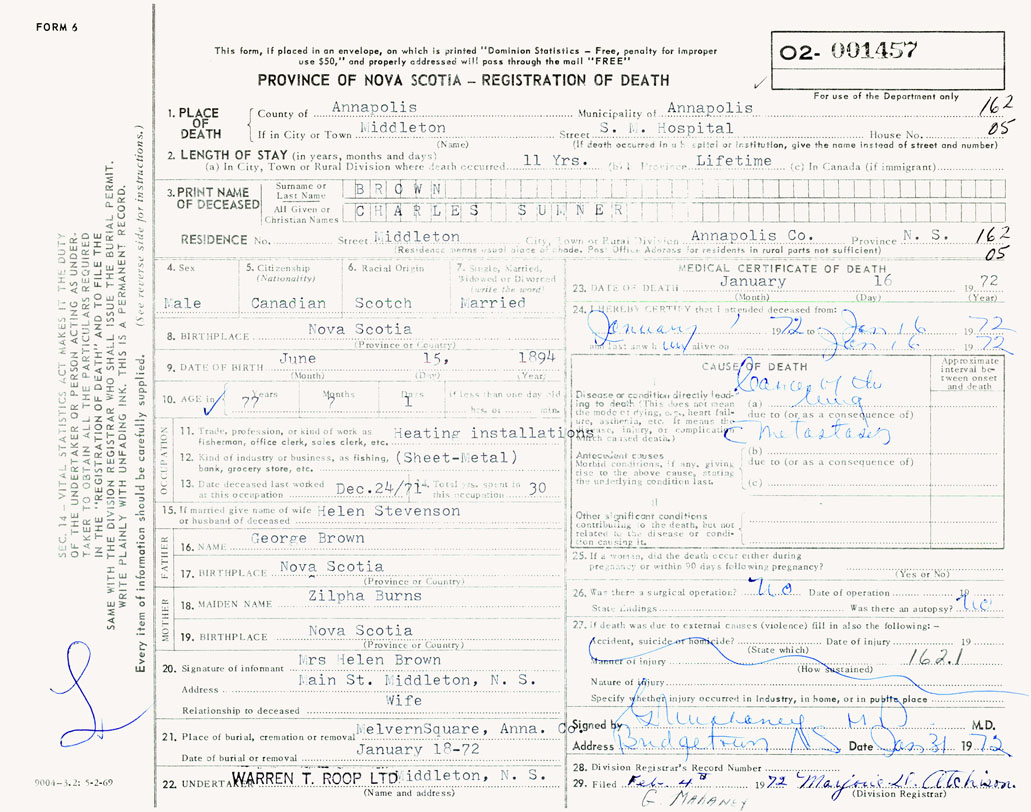 FORM 6
This form, if placed in an envelope, on which is printed "Dominion Statistics – Free, penalty for improper
use $50," and properly addressed will pass through the mail "FREE"
PROVINCE OF NOVA SCOTIA – REGISTRATION OF DEATH
O2- 001457
For use of the Department only
1. PLACE OF DEATH
County of Annapolis Municipality of Annapolis 162
If in City or Town Middleton Street S. M. Hospital House No. 05
(Name) (If death occurred in a hospital or institution, give the name instead of street and number)
2. LENGTH OF STAY (in years, months and days)
(a) In City, Town or Rural Division where death occurred 11 Yrs. (b) Province Lifetime (c) In Canada (if immigrant)
3. PRINT NAME OF DECEASED
Surname or Last Name BROWN
All Given or Christian Names CHARLES SUMNER
RESIDENCE No. Street Middleton City, Town or Rural Division Annapolis Co. Province N. S. 162
(Residence means usual place of abode. Post Office Address for residents in rural parts not sufficient) 05
4. Sex
Male
5. Citizenship
(Nationality)
Canadian
6. Racial Origin
Scotch
7. Single, Married,
Widowed or Divorced
(write the word)
Married
8. BIRTHPLACE Nova Scotia
(Province or Country)
9. DATE OF BIRTH June 15, 1894
(Month) (Day) (Year)
10. AGE in Years Months Days If less than one day old
77 7 1 hrs. or min.
OCCUPATION
11. Trade, profession, or kind of work as Heating installations
fisherman, office clerk, sales clerk, etc.
12. Kind of industry or business, as fishing, (Sheet-Metal)
bank, grocery store, etc.
13. Date deceased last worked at this occupation Dec.24/71
14. Total yrs. spent in this occupation 30
15. If married give name of wife Helen Stevenson
or husband of deceased
FATHER
16. NAME George Brown
17. BIRTHPLACE Nova Scotia
(Province or Country)
MOTHER
18. MAIDEN NAME Zilpha Burns
19. BIRTHPLACE Nova Scotia
(Province or Country)
20. Signature of informant Mrs Helen Brown
Address Main St. Middleton, N. S.
Relationship to deceased Wife
21. Place of burial, cremation or removal MelvernSquare, Anna. Co.
Date of burial or removal January 18-72
22. UNDERTAKER WARREN T. ROOP LTD Middleton, N. S.
(Name and address)
MEDICAL CERTIFICATE OF DEATH
23. DATE OF DEATH January 16 1972
(Month) (Day) (Year)
24. I HEREBY CERTIFY that I attended deceased from:
January 1 1972 to Jan 16 1972
and last saw him alive on Jan 16 1972
CAUSE OF DEATH
Approximate interval between onset and death
Disease or condition directly leading to death (This does not mean
the mode of dying, e.g., heart failure, asthenia, etc. It means the
disease, injury, or complication which caused death.)
(a) Cancer of the lung
due to (or as a consequence of)
c Metastases
Antecedent causes
Morbid conditions, if any, giving
rise to the above cause, stating
the underlying condition last.
(b)
due to (or as a consequence of)
(c)
II
Other significant conditions
contributing to the death, but not
related to the disease or condition causing it.
25. If a woman, did the death occur either during
pregnancy or within 90 days following pregnancy?
(Yes or No)
26. Was there a surgical operation? No Date of operation 19
State findings Was there an autopsy? No
27. If death was due to external causes (violence) fill in also the following: –
Accident, suicide or homicide? Date of injury 19
(State which)
Manner of injury 162.1
(How sustained)
Nature of injury
Specify whether injury occurred in Industry, in home, or in public place
Signed by G Mahaney M D M.D.
Address Bridgetown N S Date Jan 31 1972
28. Division Registrar's Record Number
29. Filed Feb. 4th 1972 Marjorie H. Atchison.
(Division Registrar)
G. MAHANEY
SEC. 14 – VITAL STATISTICS ACT MAKES IT THE DUTY
OF THE UNDERTAKER OR PERSON ACTING AS UNDERTAKER TO OBTAIN ALL THE PARTICULARS REQUIRED
IN THE "REGISTRATION OF DEATH" AND TO FILE THE
SAME WITH THE DIVISION REGISTRAR WHO SHALL ISSUE THE BURIAL PERMIT.
WRITE PLAINLY WITH UNFADING INK. THIS IS A PERMANENT RECORD.
Every item of information should be carefully supplied. (See reverse side for instructions.)
9004-3.2: 5-2-69